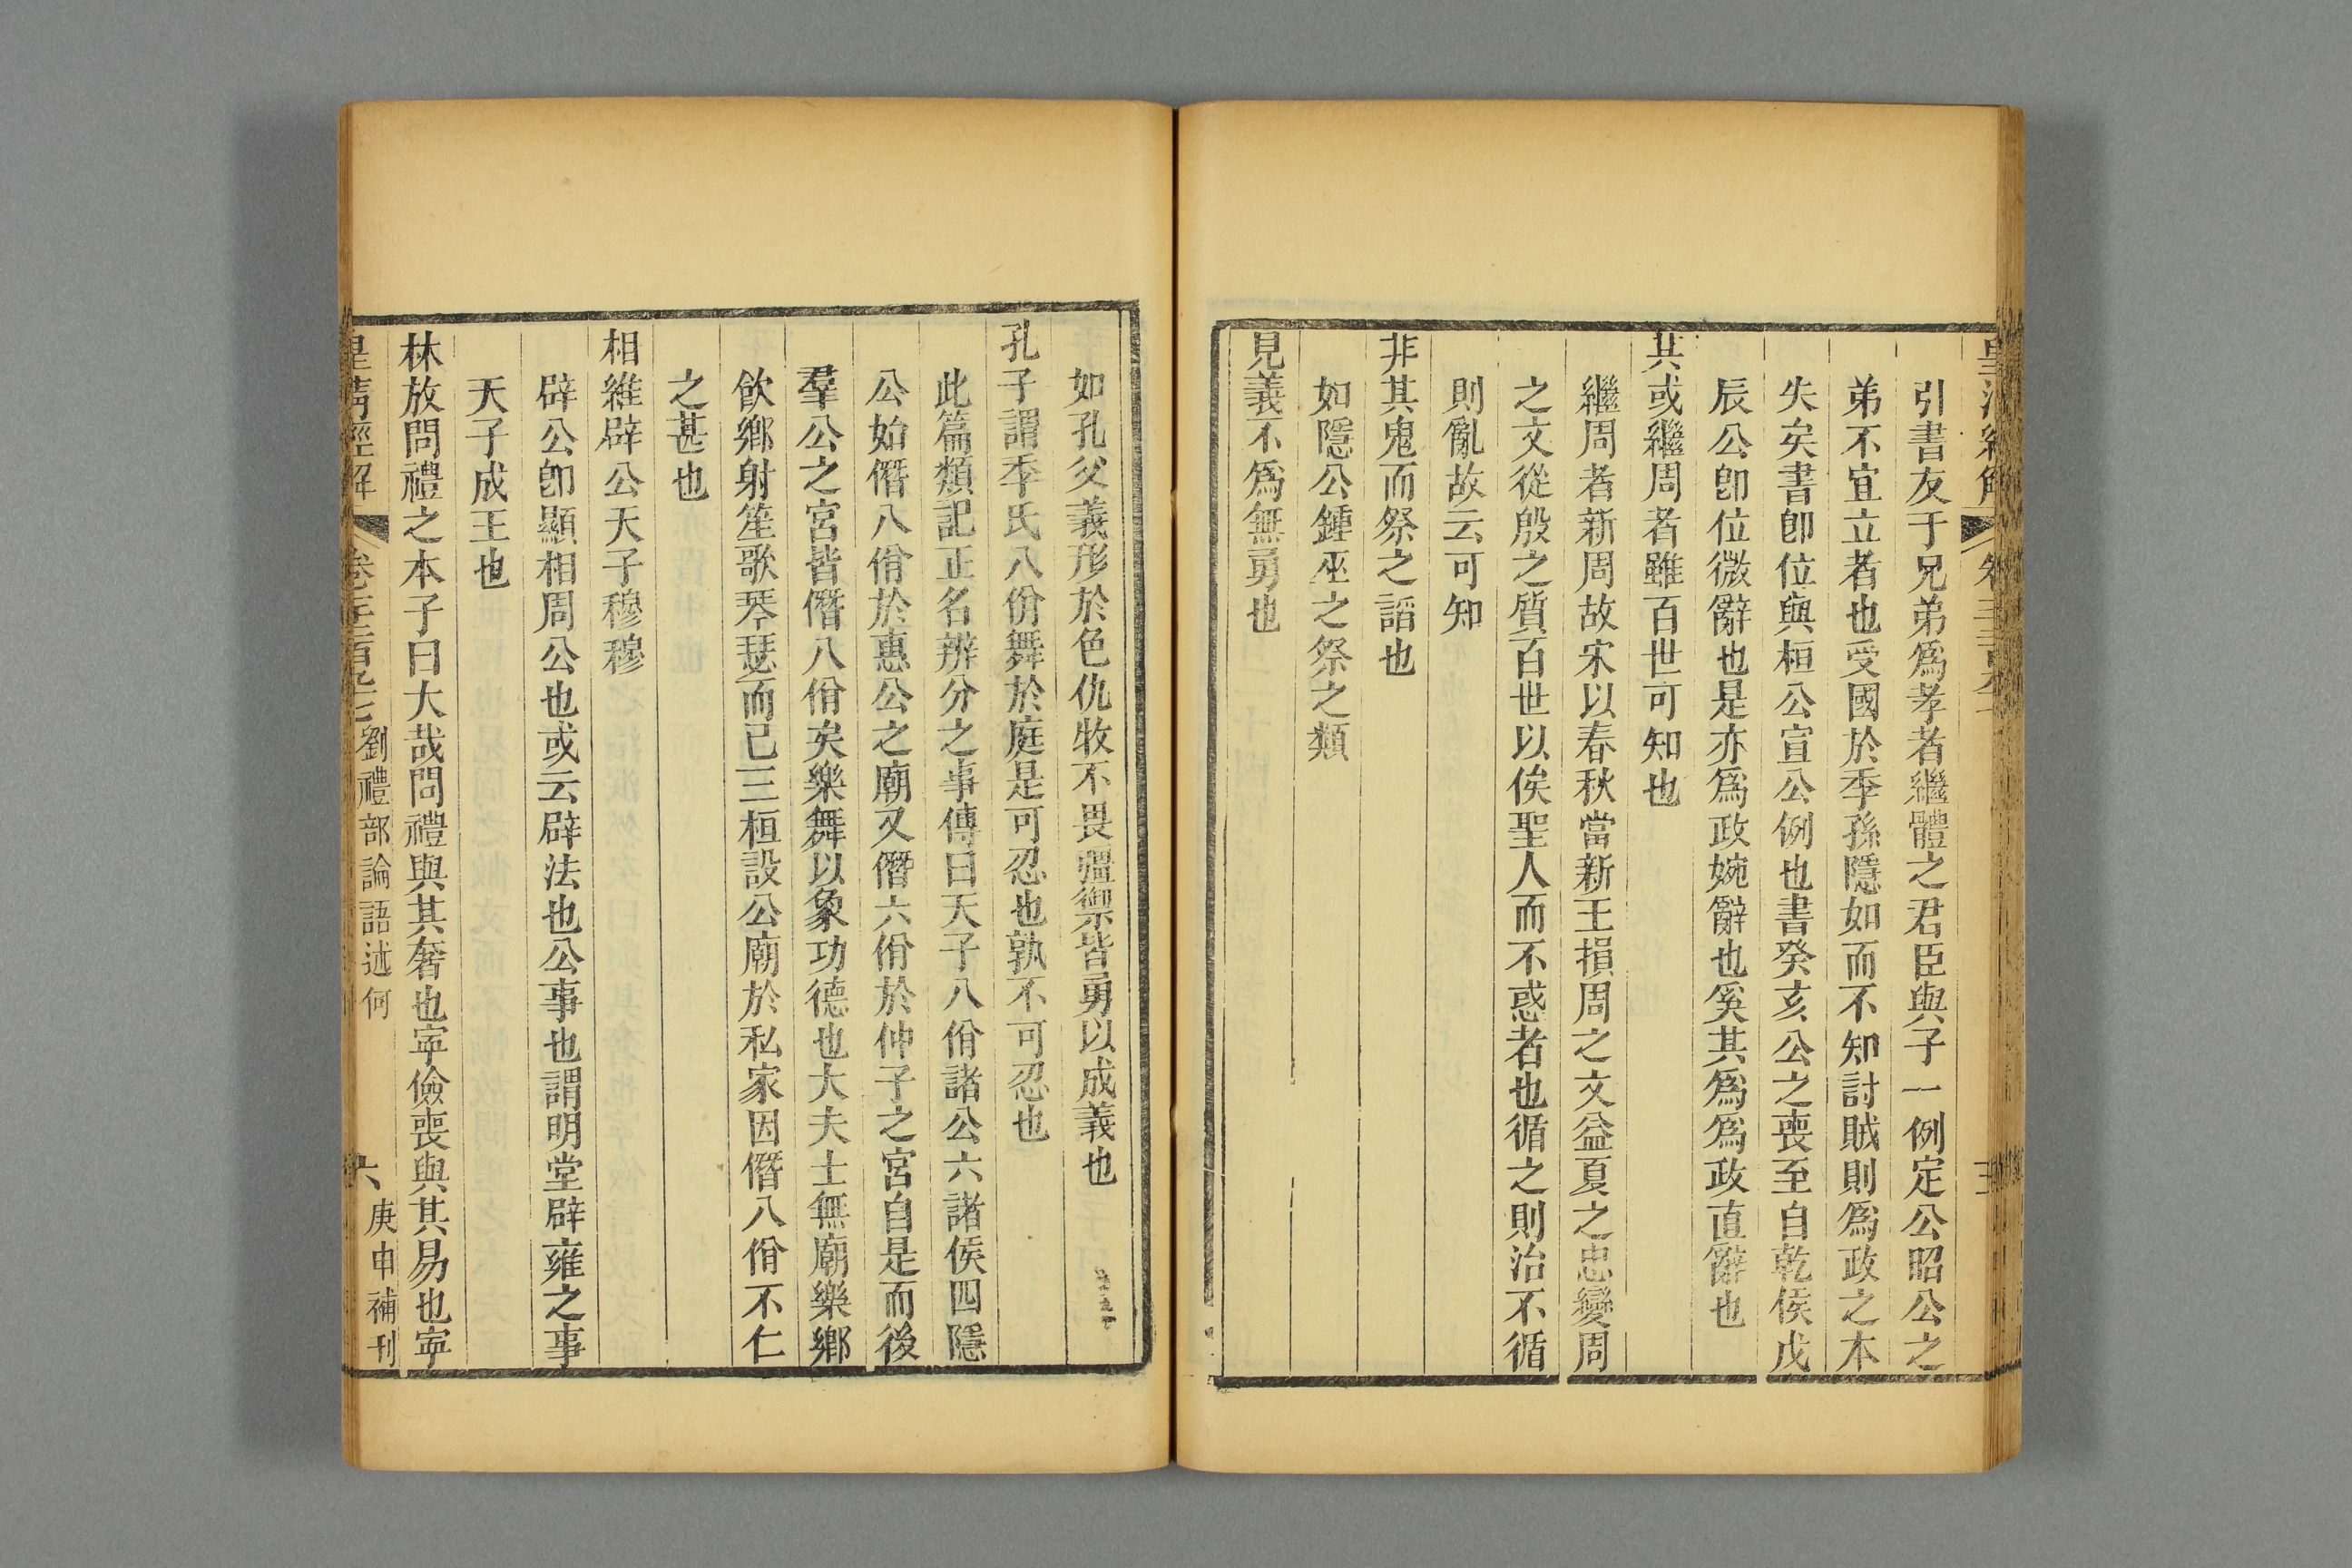 引書友于兄弟爲孝者繼體之君臣與子一例定公昭公之
弟不宜立者也受國於季孫隱如而不知討賊則爲政之本
失矣書卽位與桓公宣公例也書癸亥公之喪至自乾侯戊
辰公卽位微辭也是亦爲政婉辭也奚其爲爲政直辭也
其或繼周者雖百世可知也
繼周者新周故宋以春秋當新王損周之文益夏之忠變周
之文從殷之質百世以俟聖人而不惑者也循之則治不循
則亂故云可知
非其鬼而祭之諂也
如隱公鍾巫之祭之類
見義不爲無勇也
如孔父義形於色仇牧不畏彊禦皆勇以成義也
孔子謂季氏八佾舞於庭是可忍也孰不可忍也
此篇類記正名辨分之事傳曰天子八佾諸公六諸侯四隱
公始僭八佾於惠公之廟又僭六佾於仲子之宮自是而後
羣公之宮皆僭八佾矣樂舞以象功德也大夫士無廟樂鄉
飲鄉射笙歌琴瑟而已三桓設公廟於私家因僭八佾不仁
之甚也
相維辟公天子穆穆
辟公卽顯相周公也或云辟法也公事也謂明堂辟雍之事
天子成王也
林放問禮之本子曰大哉問禮與其奢也寧儉喪與其易也寧
皇淸經解 卷 劉禮部論語述何 六 庚申補刊